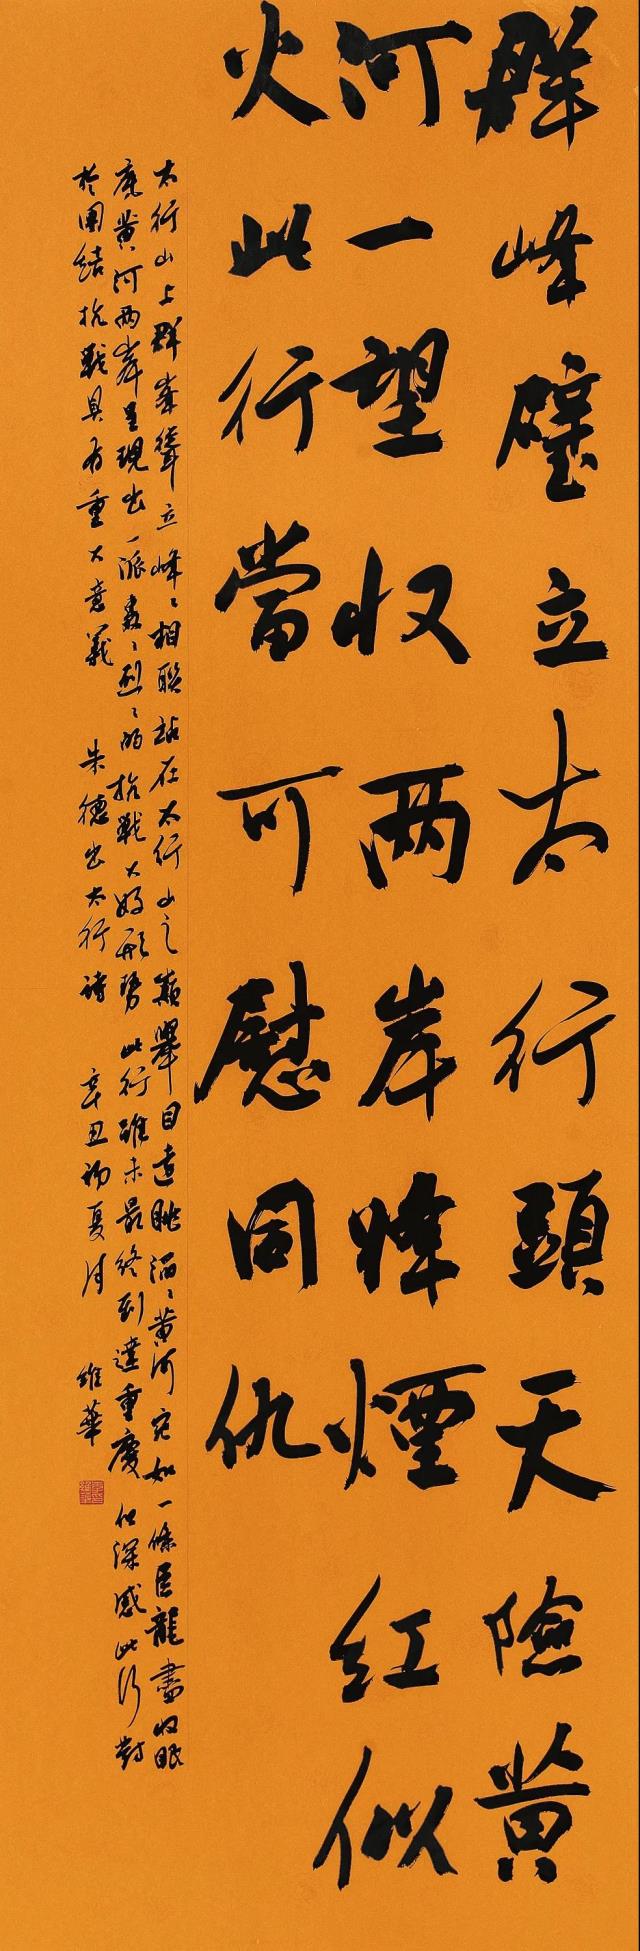 群峰壁立太行頭天險黄
河一望收两岸烽煙红似
火此行當可慰同仇
太行山上群峯聳立峰〻相联站在太行山之巅舉目遠眺滔〻黄河宛如一條巨龍盡收眼
底黄河两岸呈現出一派轰〻烈〻的抗戰大好形势此行雖未最終到達重慶但深感此行對
於團結抗戰具有重大意義 朱德出太行詩 辛丑初夏 维華